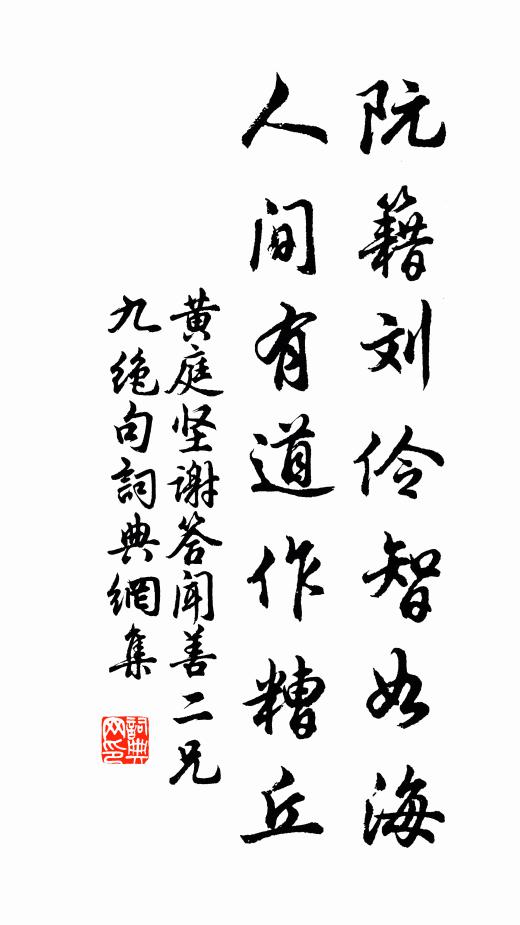 阮籍刘伶智如海
人间有道作糟丘
黄庭坚谢答闻善二兄
九绝句詞典網集
詞典網印